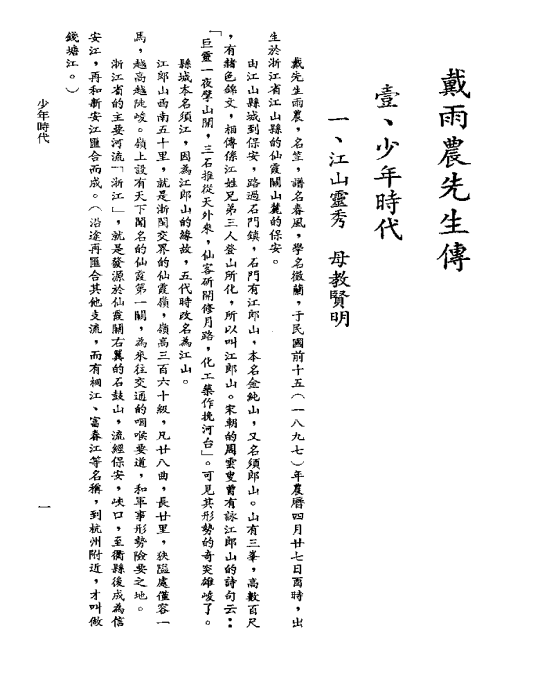 戴雨農先生傳
壹、少年時代
一、江山靈秀　母教賢明
戴先生雨農，名笠，譜名春風，學名徵蘭，于民國前十五（一八九七）年農曆四月廿七日酉時，出
生於浙江省江山縣的仙霞關山麓的保安。
由江山縣城到保安，路過石門鎮，石門有江郎山，本名金純山，又名須郎山。山有三峯，高數百尺
，有赭色錦文，相傳係江姓兄弟三人登山所化，所以叫江郎山。宋朝的周雲叟曾有詠江郎山的詩句云：
「巨靈一夜擘山開，三石推從天外來，仙客斫開修月路，化工築作挽河台」。可見其形勢的奇突雄峻了。
縣城本名須江，因為江郎山的緣故，五代時改名為江山。
江郎山西南五十里，就是浙閩交界的仙霞嶺，嶺高三百六十級，凡廿八曲，長廿里，狹隘處僅容一
馬，越高越陡峻。嶺上設有天下聞名的仙霞第一關，為來往交通的咽喉要道，和軍事形勢險要之地。
浙江省的主要河流「浙江」，就是發源於仙霞關右翼的石鼓山，流經保安，峽口，至衢縣後成為信
安江，再和新安江匯合而成。（沿途再匯合其他支流，而有桐江、富春江等名稱，到杭州附近，才叫做
錢塘江。）
少年時代
一